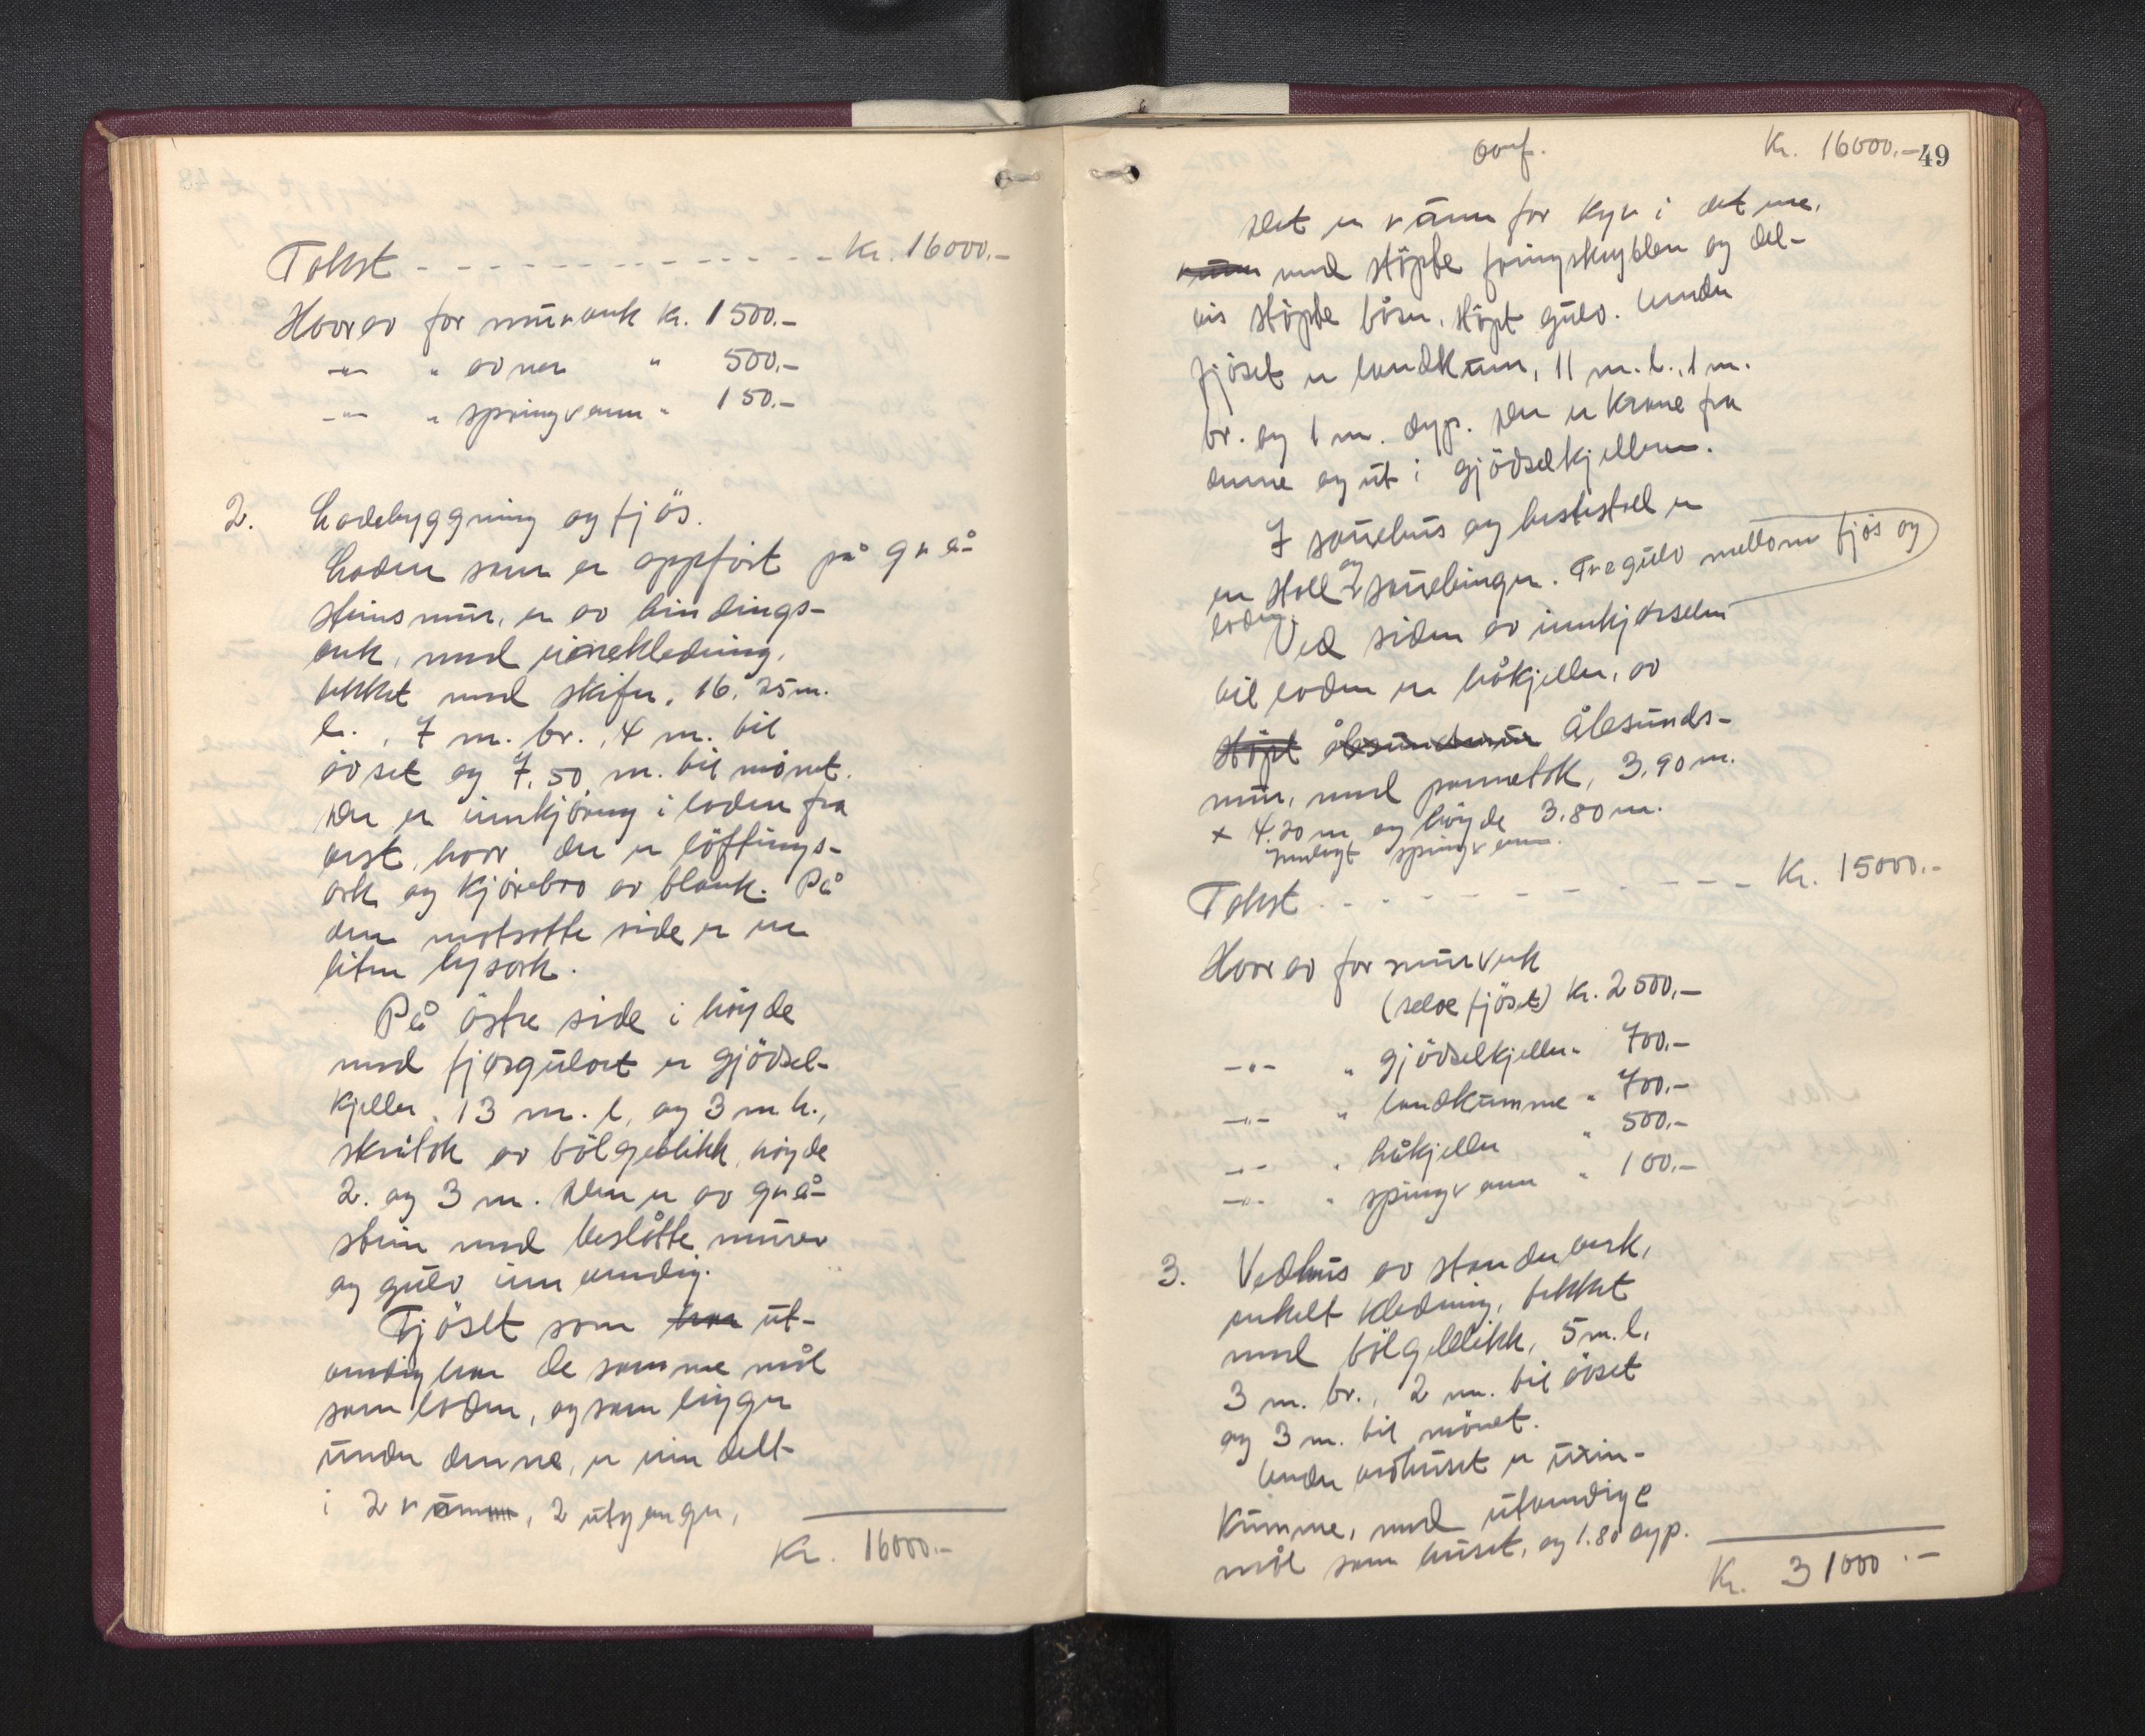 Takst - - - - - - - - - - - - - Kr. 16000.-
Hvorav for murverk Kr. 1500.-
-"- " ovner " 500.-
-"- " springvann " 150.-
2. Ladebyggning og fjös.
Laden som er oppfört på grå-
steinsmur, er av bindings-
verk, med kledning,
tekket med skifer, 16.25 m.
l., 7 m. br., 4 m. til
övset og 7.50 m. til mönet.
Der er innkjöring i laden fra
vest, hvor der er löftings-
ark og kjörebro av plank. På
den motsatte side er en
liten lysark.
På östre side i höyde
med fjösgulvet er gjödsel-
kjeller, 13 m. l. og 3 m. b.,
skråtak av bölgeblikk, höyde
2. og 3 m. Den er av grå-
stein med beslåtte murer
og gulv innvendig.
Fjöset som har ut-
vendig har de samme mål
som laden, og som ligger
under denne, er inndelt
i 2 rumm, 2 utganger,
Kr. 16000.-
Overf. Kr. 16000.- 49
Det er rum for kyr i det ene,
rum med stöpte foringskrybber og del-
vis stöpte båser, stöpt gulv. Under
fjöset er landkum, 11 m. l., 1 m.
br. og 1 m. dyp. Der er krane fra
denne og ut i gjödselkjelleren.
I sauehus og hestestall er
en stall og sauebinger. Tregulv mellom fjös og
laden.
Ved siden av innkjörselen
til laden er håkjeller, av
stöpt ålesundsmur Ålesunds-
mur, med pannetak, 3.90 m.
x 4.20 m og höyde 3.80 m.
Innlagt springvann.
Takst - - - - - - - - - - Kr. 15000.-
Hvorav for murverk
(selve fjöset) Kr. 2500.-
-"- " gjödselkjeller " 700.-
-"- " landkumme " 700.-
-"- " håkjeller " 500.-
-"- " springvann " 100.-
3. Vedhus av standerverk,
enkelt kledning, tekket
med bölgeblikk, 5 m. l.
3 m. br., 2 m. til övset
og 3 m. til mönet.
Under vedhuset er urin-
kumme, med utvendige
mål som huset, og 1.80 dyp.
Kr. 31000.-